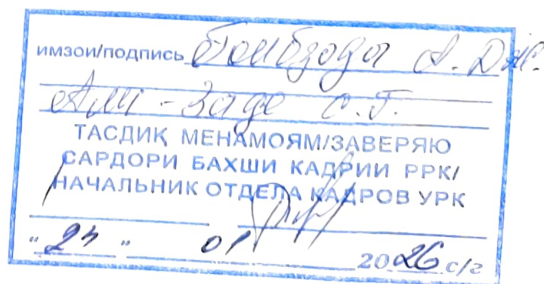 имзои/подпись Ғоибзода А. Дж.
Али-Заде С. Г.
ТАСДИҚ МЕНАМОЯМ/ЗАВЕРЯЮ
САРДОРИ БАХШИ КАДРИИ РРК/
НАЧАЛЬНИК ОТДЕЛА КАДРОВ УРК
" 27 " 01 2026 с/г